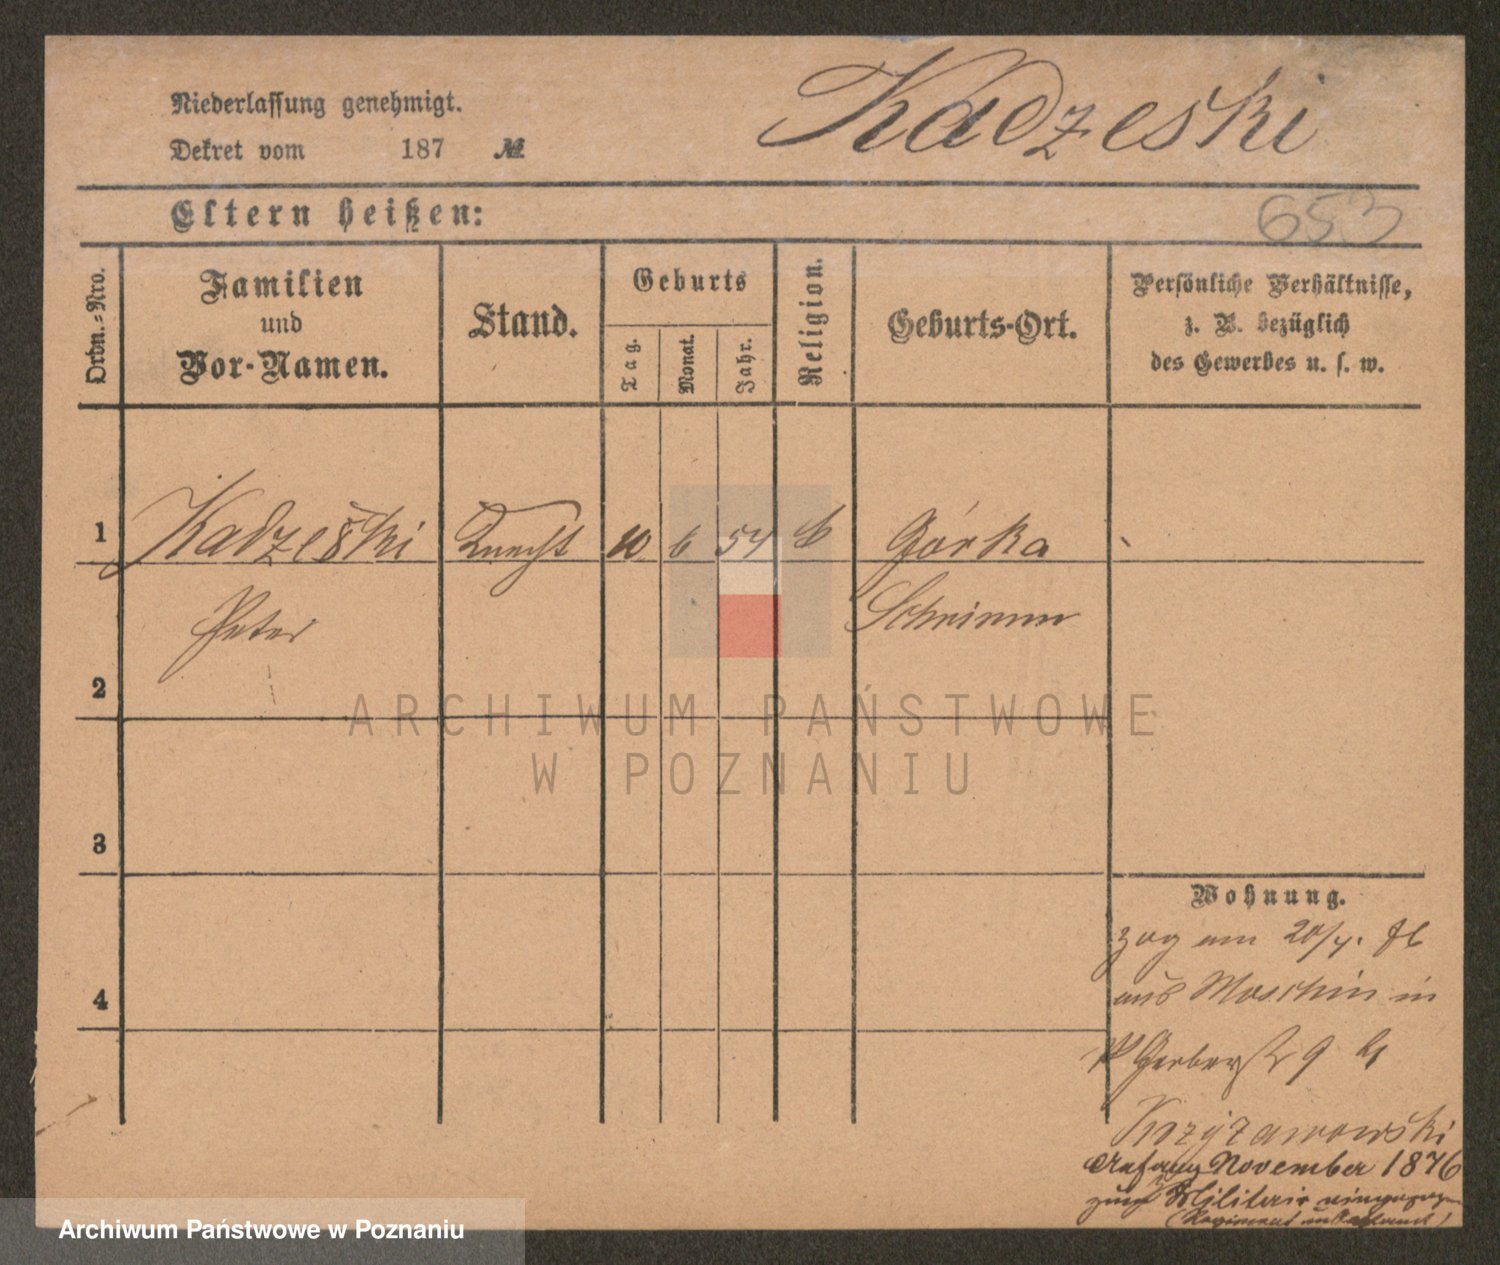 Kadzeski
Niederlassung genehmigt.
Dekret vom 187 №
Eltern heißen:
653
Ordn.-Nro.
Familien
und
Vor-Namen.
Stand.
Geburts
Tag.
Monat.
Jahr.
Religion.
Geburts-Ort.
Persönliche Verhältnisse,
z. B. bezüglich
des Gewerbes u. s. w.
1 Kadzeski Knecht 10 6 54 k Górka
Peter Schrimm
2
ARCHIWUM PAŃSTWOWE
W POZNANIU
3
Wohnung.
zog am 20/4. 76
aus Moschin in
Gerberstr 9 b
4
Krzyzanowski
Anfang November 1876
zum Militair eingezogen
(Regiment in Rastatt)
Archiwum Państwowe w Poznaniu